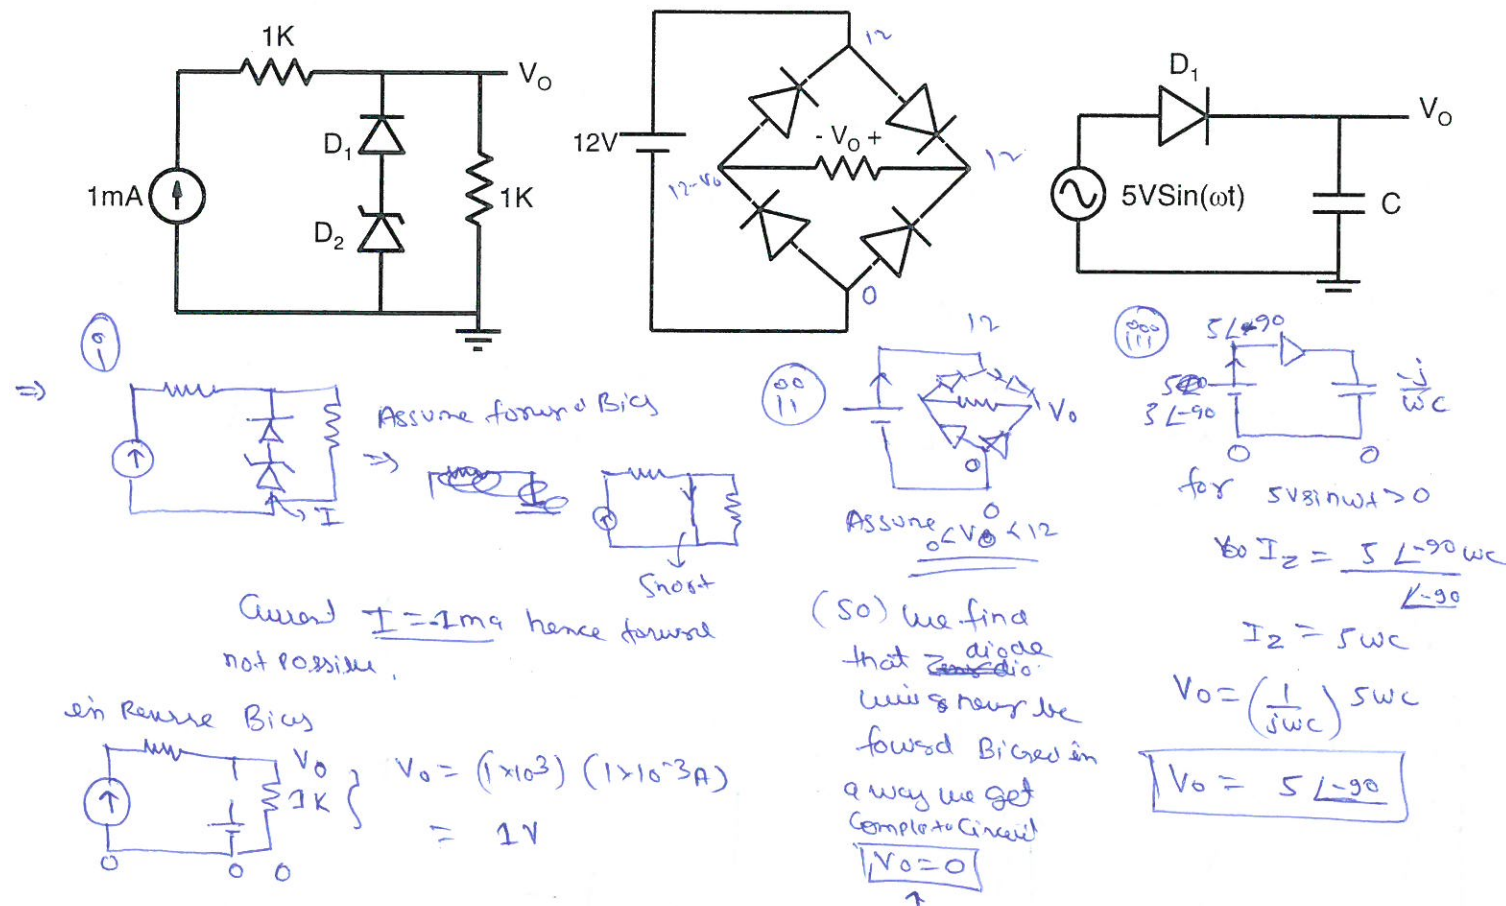 1K
V_O
D_1
D_2
1mA
1K
12
12V
- V_O +
12
12-V_o
0
D_1
V_O
5VSin(ωt)
C
i
⇒
Assume forward Bias
⇒
I
Short
Current I = -1ma hence forward
not possible,
in Reverse Bias
V_o
1K
0
0
0
V_o = (1×10^3) (1×10^-3 A)
= 1V
ii
12
V_o
0
0
Assume 0 < V_o < 12
(SO) we find
that diode
never be
forward Biased in
a way we get
Complete Circuit
V_o = 0
↑
iii
5∠-90
5∠-90
-j/ωC
0
0
for 5vsinωt > 0
I_z = 5∠-90 ωC / ∠-90
I_z = 5ωC
V_o = (1/jωC) 5ωC
V_o = 5∠-90